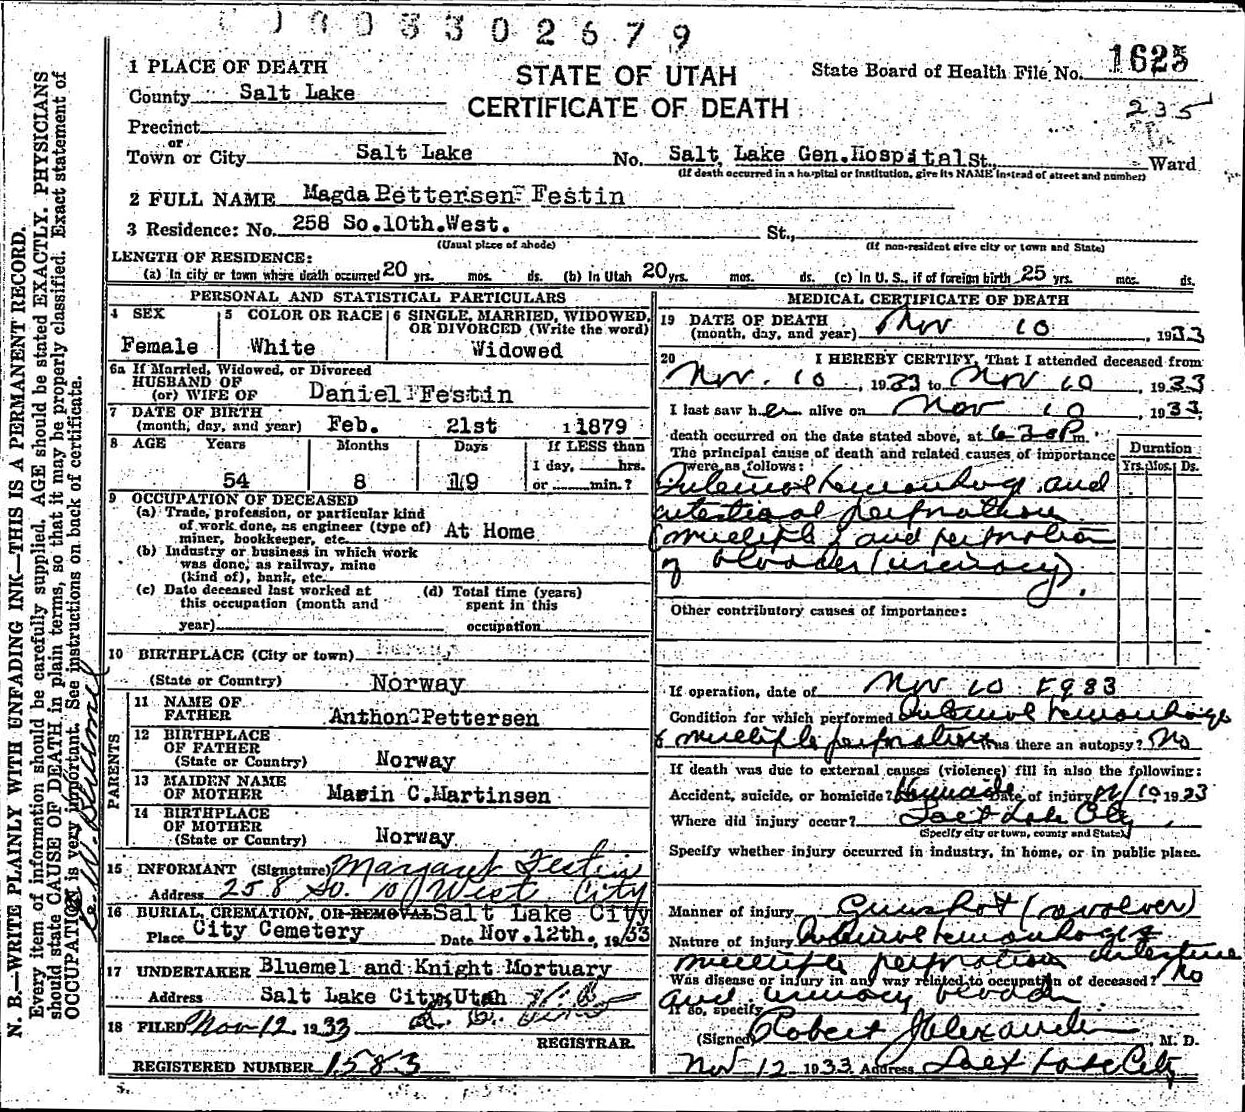 0003302679
1 PLACE OF DEATH
STATE OF UTAH
CERTIFICATE OF DEATH
State Board of Health File No. 1625
235
County Salt Lake
Precinct
or
Town or City Salt Lake No. Salt Lake Gen.Hospital St., Ward
(If death occurred in a hospital or institution, give its NAME instead of street and number)
2 FULL NAME Magda Pettersen Festin
3 Residence: No. 258 So.10th.West. St.,
(Usual place of abode) (If non-resident give city or town and State)
LENGTH OF RESIDENCE:
(a) In city or town where death occurred 20 yrs. mos. ds. (b) In Utah 20 yrs. mos. ds. (c) In U. S., if of foreign birth 25 yrs. mos. ds.
PERSONAL AND STATISTICAL PARTICULARS
4 SEX 5 COLOR OR RACE 6 SINGLE, MARRIED, WIDOWED, OR DIVORCED (Write the word)
Female White Widowed
6a If Married, Widowed, or Divorced
HUSBAND OF
(or) WIFE OF Daniel Festin
7 DATE OF BIRTH
(month, day, and year) Feb. 21st 1879
8 AGE Years Months Days If LESS than
1 day, hrs.
54 8 19 or min.?
9 OCCUPATION OF DECEASED
(a) Trade, profession, or particular kind
of work done, as engineer (type of)
miner, bookkeeper, etc. At Home
(b) Industry or business in which work
was done, as railway, mine
(kind of), bank, etc.
(c) Date deceased last worked at
this occupation (month and
year)
(d) Total time (years)
spent in this
occupation
10 BIRTHPLACE (City or town)
(State or Country) Norway
PARENTS
11 NAME OF
FATHER Anthon Pettersen
12 BIRTHPLACE
OF FATHER
(State or Country) Norway
13 MAIDEN NAME
OF MOTHER Marin C.Martinsen
14 BIRTHPLACE
OF MOTHER
(State or Country) Norway
15 INFORMANT (Signature) Margaret Festin
Address 258 So. 10 West City
16 BURIAL, CREMATION, OR REMOVAL Salt Lake City
Place City Cemetery Date Nov.12th., 1933
17 UNDERTAKER Bluemel and Knight Mortuary
Address Salt Lake City, Utah
18 FILED Nov 12 1933
REGISTRAR.
REGISTERED NUMBER 1583
MEDICAL CERTIFICATE OF DEATH
19 DATE OF DEATH
(month, day, and year) Nov 10, 1933
20 I HEREBY CERTIFY, That I attended deceased from
Nov. 10, 1933 to Nov 10, 1933
I last saw her alive on Nov 10, 1933
death occurred on the date stated above, at 6 30 P m.
The principal cause of death and related causes of importance
were as follows:
Duration
Yrs. Mos. Ds.
Internal hemorrhage and
intestinal perforations
(multiple) and perforation
of bladder (urinary).
Other contributory causes of importance:
If operation, date of Nov 10 1933
Condition for which performed Internal hemorrhage
& multiple perforations Was there an autopsy? No
If death was due to external causes (violence) fill in also the following:
Accident, suicide, or homicide? Homicide Date of injury 11/10 1933
Where did injury occur? Salt Lake City
(Specify city or town, county and State)
Specify whether injury occurred in industry, in home, or in public place.
Manner of injury Gunshot (revolver)
Nature of injury Internal hemorrhage &
multiple perforations intestine
Was disease or injury in any way related to occupation of deceased? No
and urinary bladder
If so, specify
(Signed) Robert Alexander, M. D.
Nov 12 1933 Address Salt Lake City
N. B.—WRITE PLAINLY WITH UNFADING INK—THIS IS A PERMANENT RECORD.
Every item of information should be carefully supplied. AGE should be stated EXACTLY. PHYSICIANS
should state CAUSE OF DEATH in plain terms, so that it may be properly classified. Exact statement of
OCCUPATION is very important. See instructions on back of certificate.